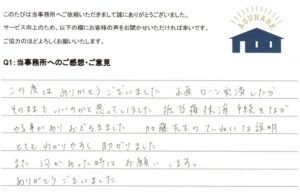 このたびは当事務所へご依頼いただきまして誠にありがとうございました。
サービス向上のため、以下の欄にお客様の声をお聞かせいただければ幸いです。
ご協力のほどよろしくお願いいたします。
ASUHARE
Q1:当事務所へのご感想・ご意見
この度は ありがとうございました 正直 ローン完済したら
そのままで いいのかと思っていました 抵当権抹消 手続きなど
やる事があり おどろきました 加藤先生の ていねいな説明
とても わかりやすく 助かりました
また 何かあった時は お願い します。
ありがとうございました